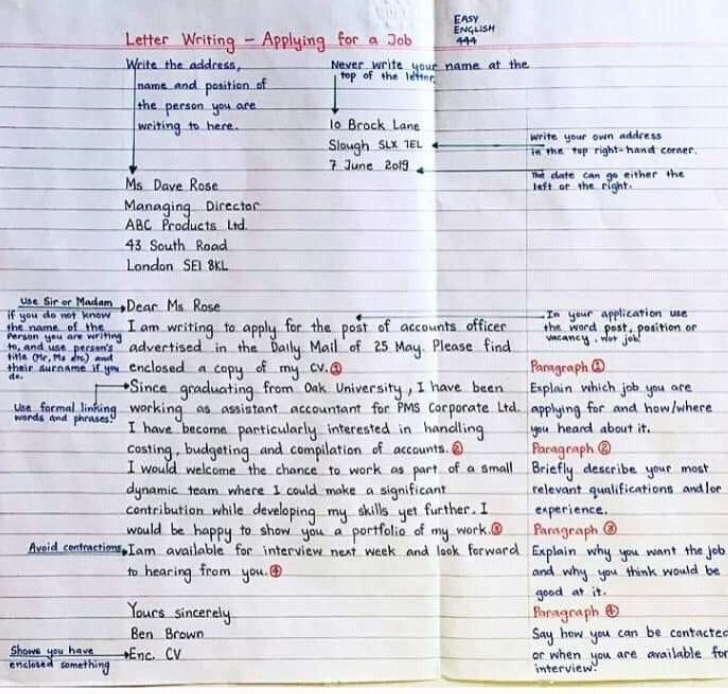 EASY
ENGLISH
444
Letter Writing - Applying for a Job
Write the address,
name and position of
the person you are
writing to here.
Never write your name at the
top of the letter.
10 Brock Lane
Slough SLX 7EL
7 June 2019
Write your own address
in the top right-hand corner.
The date can go either the
left or the right.
Ms Dave Rose
Managing Director
ABC Products Ltd.
43 South Road
London SE1 8KL
Use Sir or Madam
if you do not know
the name of the
Person you are writing
to, and use person's
title (Mr, Ms etc) and
their surname if you
do.
Use formal linking
words and phrases!
Avoid contractions
Shows you have
enclosed something
Dear Ms Rose
I am writing to apply for the post of accounts officer
advertised in the Daily Mail of 25 May. Please find
enclosed a copy of my CV. ①
Since graduating from Oak University, I have been
working as assistant accountant for PMS Corporate Ltd.
I have become particularly interested in handling
costing, budgeting and compilation of accounts. ②
I would welcome the chance to work as part of a small
dynamic team where I could make a significant
contribution while developing my skills yet further. I
would be happy to show you a portfolio of my work. ③
I am available for interview next week and look forward
to hearing from you. ④
Yours sincerely
Ben Brown
Enc. CV
In your application use
the word post, position or
vacancy, not job!
Paragraph ①
Explain which job you are
applying for and how/where
you heard about it.
Paragraph ②
Briefly describe your most
relevant qualifications and/or
experience.
Paragraph ③
Explain why you want the job
and why you think would be
good at it.
Paragraph ④
Say how you can be contacted
or when you are available for
interview.